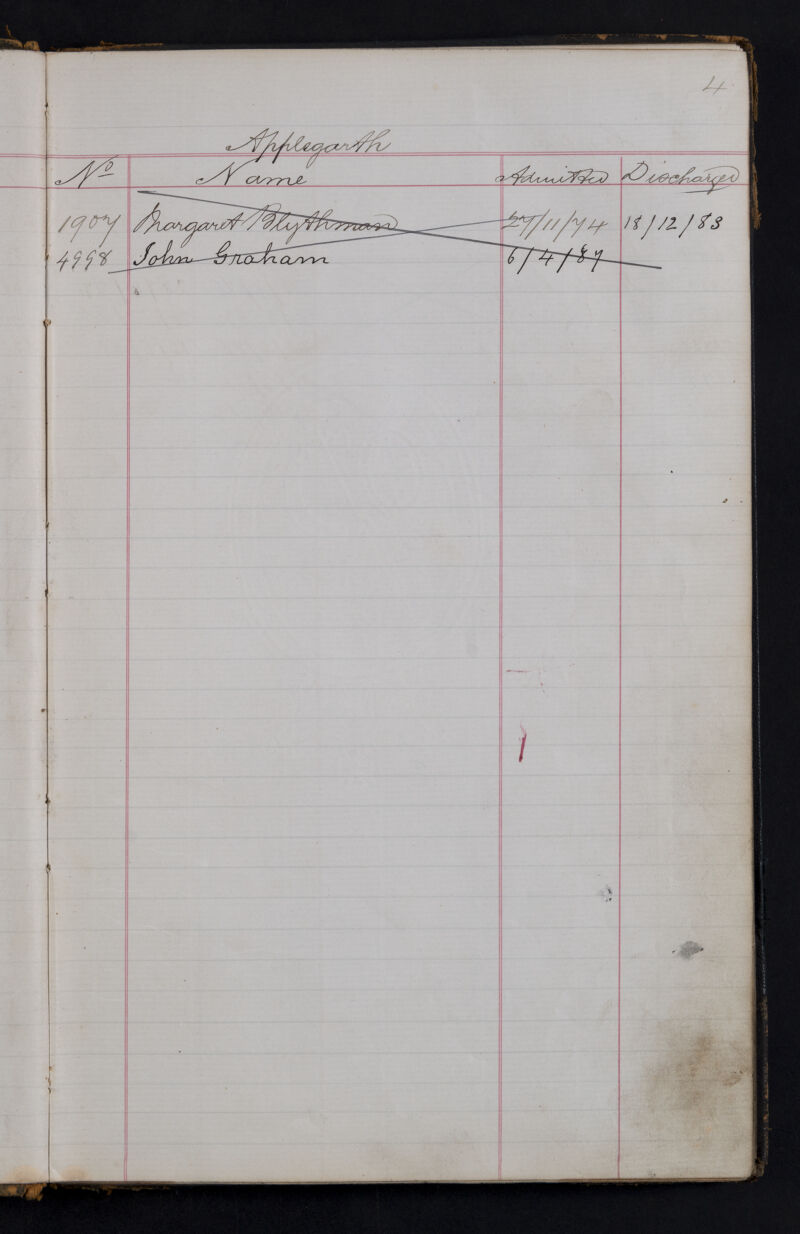 4
Applegarth
No Name Admitted Discharged
1907 Margaret Blythman 27/11/74 18/12/83
4998 John Graham 6/4/87